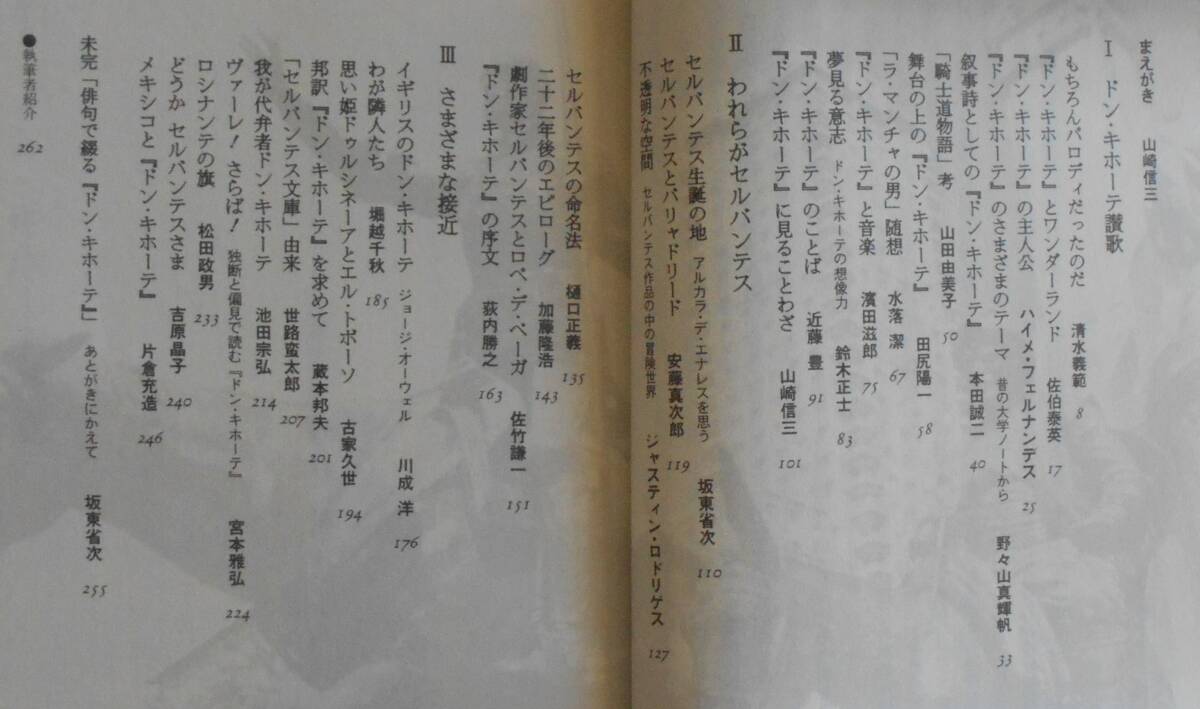 まえがき　山崎信三
Ⅰ　ドン・キホーテ讃歌
もちろんパロディだったのだ　清水義範　8
『ドン・キホーテ』とワンダーランド　佐伯泰英　17
『ドン・キホーテ』の主人公　ハイメ・フェルナンデス　25
『ドン・キホーテ』のさまざまのテーマ　昔の大学ノートから　野々山真輝帆　33
叙事詩としての『ドン・キホーテ』　本田誠二　40
「騎士道物語」考　山田由美子　50
舞台の上の『ドン・キホーテ』　田尻陽一　58
「ラ・マンチャの男」随想　水落潔　67
『ドン・キホーテ』と音楽　濱田滋郎　75
夢見る意志　ドン・キホーテの想像力　鈴木正士　83
『ドン・キホーテ』のことば　近藤豊　91
『ドン・キホーテ』に見ることわざ　山崎信三　101
Ⅱ　われらがセルバンテス
セルバンテス生誕の地　アルカラ・デ・エナレスを思う　坂東省次　110
セルバンテスとバリャドリード　安藤真次郎　119
不透明な空間　セルバンテス作品の中の冒険世界　ジャスティン・ロドリゲス　127
セルバンテスの命名法　樋口正義　135
二十二年後のエピローグ　加藤隆浩　143
劇作家セルバンテスとロペ・デ・ベーガ　佐竹謙一　151
『ドン・キホーテ』の序文　荻内勝之　163
Ⅲ　さまざまな接近
イギリスのドン・キホーテ　ジョージ・オーウェル　川成洋　176
わが隣人たち　堀越千秋　185
思い姫ドゥルシネーアとエル・トボーソ　古家久世　194
邦訳『ドン・キホーテ』を求めて　蔵本邦夫　201
「セルバンテス文庫」由来　世路蛮太郎　207
我が代弁者ドン・キホーテ　池田宗弘　214
ヴァーレ！さらば！　独断と偏見で読む『ドン・キホーテ』　宮本雅弘　224
ロシナンテの旗　松田政男　233
どうか　セルバンテスさま　吉原晶子　240
メキシコと『ドン・キホーテ』　片倉充造　246
未完「俳句で綴る『ドン・キホーテ』」　あとがきにかえて　坂東省次　255
●執筆者紹介　262